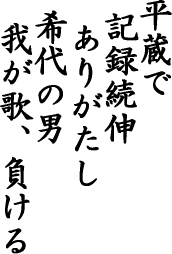 平蔵で
記録続伸
ありがたし
希代の男
我が歌、負ける